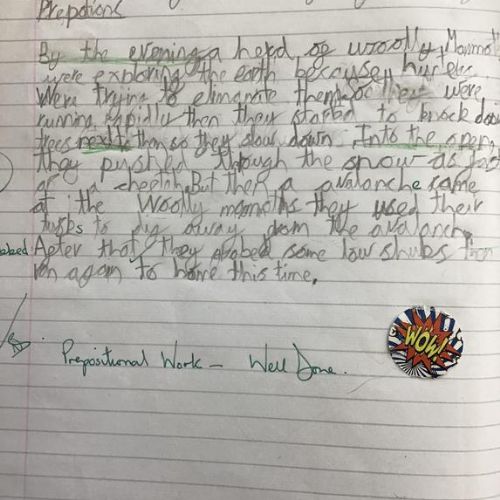 Prepotions
By the evening a herd of woolly Mammoths
were exploring the earth because hunters
Were trying to elimanate them so they were
running rapidly then they started to knock down
trees next to them so they slow down. Into the open,
they pushed through the snow as fast
as a cheetah. But then a avalanche came
at the Woolly mammoths they used their
tusks to dig away from the avalanch
After that they grabed some low shubs then
ran again to home this time.
Prepositional Work - Well Done.
WOW!